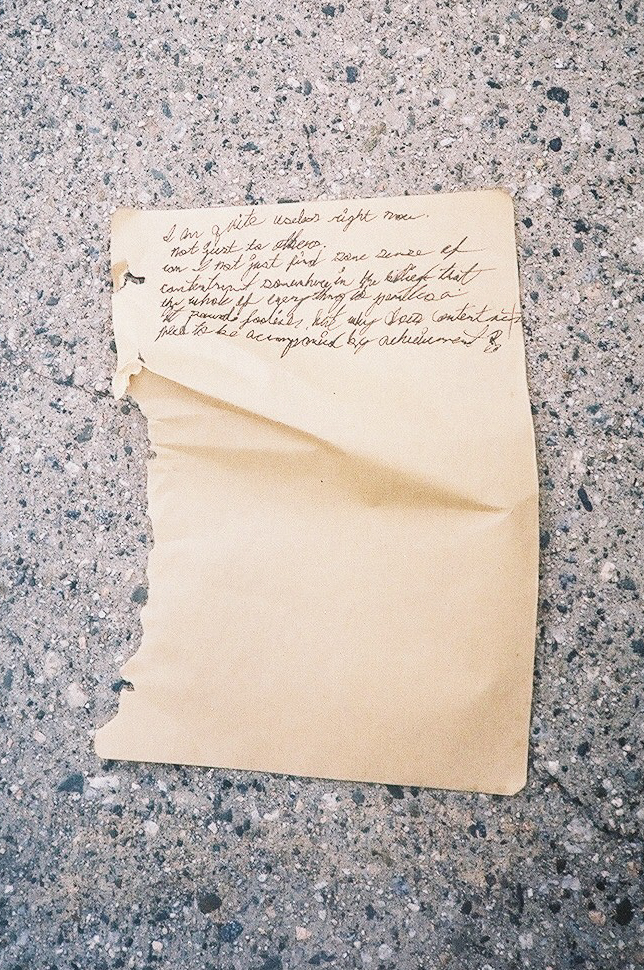 I am quite useless right now.
not just to others.
can I not just find some sense of
contentment somewhere in the belief that
the whole of everything is
it sounds foolish, but why does contentment
need to be accompanied by achievement?